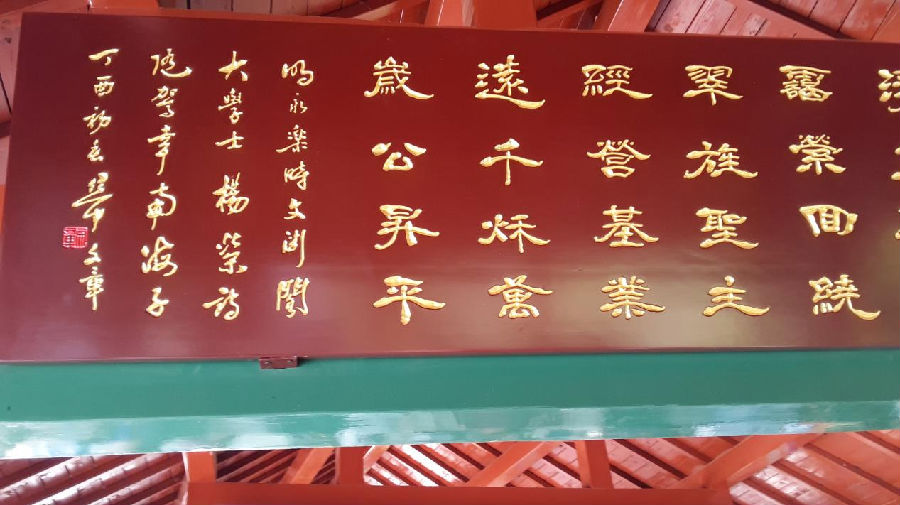 靄縈回繞
翠旌聖主
經營基業
遠千秌萬
歲公昇平
明永樂時文渊閣
大學士楊榮詩
隨駕幸南海子
丁酉初春
文章